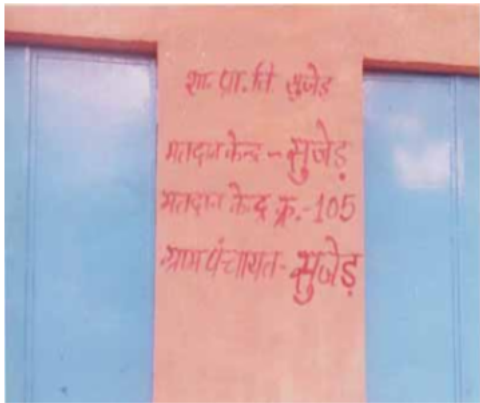 शा. प्रा. वि. सुजेड़
मतदान केन्द्र - सुजेड़
मतदान केन्द्र क्र. - 105
ग्राम पंचायत - सुजेड़